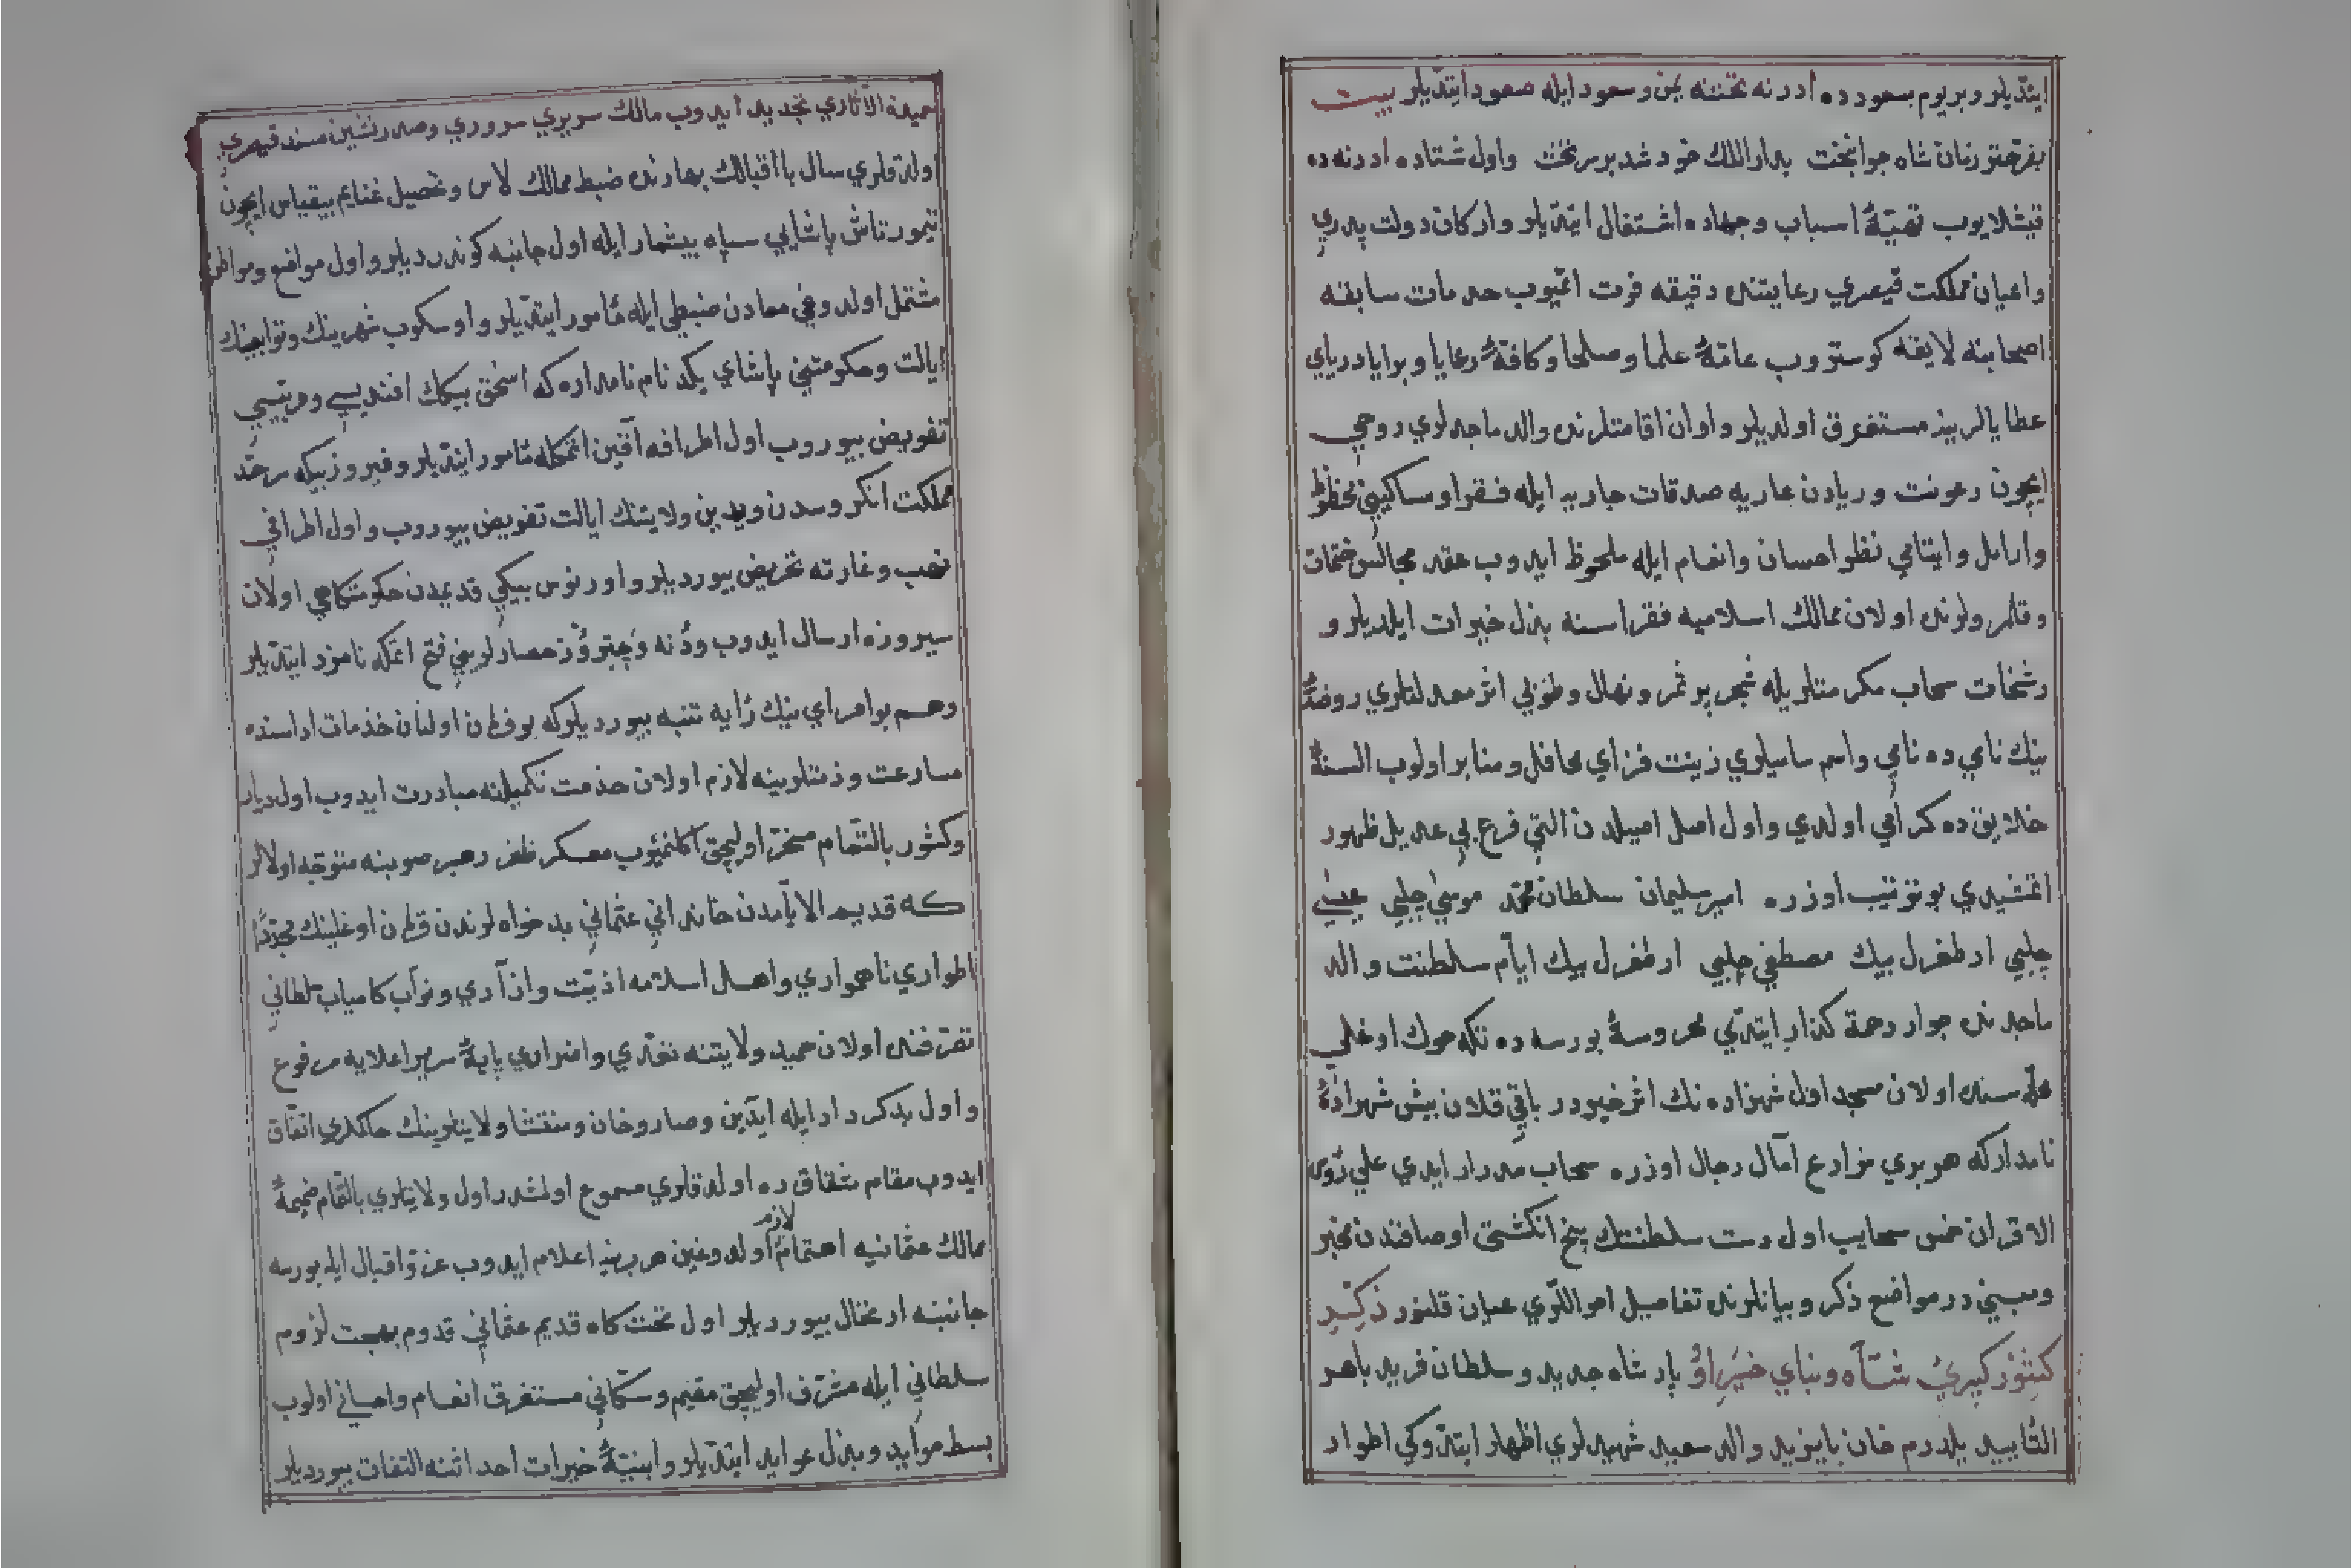 ايتديلر و بر يوم مسعودده ادرنه تختنه يمن و سعود ايله صعود ايتديلر بيت
بفر خنتر زمان شاه جوانبخت بدار الملك خود شد بر سر تخت و اول شتاده ادرنه ده
قيشلايوب تهيئهٔ اسباب و جهاده اشتغال ايتديلر و اركان دولت پدري
و اعيان مملكت قيصري رعايتنده دقيقه فوت اتميوب خدمات سابقه
اصحابنه لايقنه كوستروب عامهٔ علما و صلحا و كافهٔ رعايا و برايا درياي
عطايالرينه مستغرق اولديلر و اوان اقامتلرنده والد ماجدلري روحي
ايچون رعونت و ريادن عاريه صدقات جاريه ايله فقرا و مساكيني محظوظ
و ارامل و ايتامي نظر احسان و انعام ايله ملحوظ ايدوب عقد مجالس ختمات
و قلمرولرنده اولان ممالك اسلاميه فقراسنه بذل خيرات ايلديلر و
رشحات سحاب مكرمتلريله شجر پر ثمر و نهال و طوبي اثر معدلتلري روضهٔ
نيك نامي ده نامي و اسم ساميلري زينت فزاي محافل و منابر اولوب السنهٔ
خلايق ده كرامي اولدي و اول اصل اصيلدن التي فرع بي عديل ظهور
اتمشيدي بو ترتيب اوزره امير سليمان سلطان محمد موسي چلبي عيسي
چلبي ارطغرل بيك مصطفي چلبي ارطغرل بيك ايام سلطنت والد
ماجدنده جوار رحمة كذار ايتدي محروسهٔ بورسه ده تكه موك اوغلي
محله سنده اولان مسجد اول شهزاده نك اثر خيردر باقي قلان بيش شهزادهٔ
نامدار كه هر بري مزارع آمال رجال اوزره سحاب مدرار ايدي علي رؤس
الاقران خمس سحايب اول دست سلطنتك پنج انكشتي اوصافندن مخبر
و مبيني در مواضع ذكر و بيانلرنده تفاصيل احواللري عيان قلنور ذكر
كشور كيري شاه و بناي خير او پادشاه جديد و سلطان فريد باهر
التأييد يلدرم خان بايزيد والد سعيد شهيدلري اظهار ايتدوكي اطوار
حميدة الآثاري تجديد ايدوب مالك سريري سروري و صدر نشين مسند قيصري
اولدقلري سال با اقبالك بهارنده ضبط ممالك لاس و تحصيل غنايم بيقياس ايچون
تيمورتاش پاشايي سپاه بيشمار ايله اول جانبه كوندرديلر و اول مواضع و مواطن
مشتمل اولدوغي معادن ضبطي ايله مأمور ايتديلر و اوسكوب شهرينك و توابعينك
ايالت و حكومتني پاشاي يكد نام نامداره كه اسحق بيكك افنديسي و مربيسي
تفويض بيوروب اول اطرافه آقين اتمكله مأمور ايتديلر و فيروز بيكه سرحد
مملكت انكروسدن ويدين ولايتنك ايالت تفويض بيوروب و اول اطرافي
نهب و غارته تحريض بيورديلر و اورنوس بيكي قديمدن حكومتكاهي اولان
سيروزه ارسال ايدوب ودنه و چتروز حصارلريني فتح اتمكه نامزد ايتديلر
و هم بو امراي نيك رايه تنبيه بيورديلر كه بو فرطن اولنان خدمات اداسنده
مسارعت و ذمتلرينه لازم اولان خدمت تكميلنه مبادرت ايدوب اول ديار
و كشور بالتمام مسخر اوليجق اكلنميوب معسكر ظفر رهبر صوبنه متوجه اولالر
كه قديم الايامدن خاندانى عثماني بد خواه لرندن قرمان اوغلينك مجددا
اطواري ناهمواري و اهل اسلامه اذيت و ازآري و نوآب كامياب سلطاني
تصرفنده اولان حميد ولايتنه تعدي و اضراري پايهٔ سرير اعلايه مرفوع
و اول بدكردار ايله ايدين و صاروخان و منتشا ولايتلرينك حاكملري اتفاق
ايدوب مقام شقاق ده اولدقلري مسموع اولمشدر اول ولايتلري بالتمام ضميمهٔ
ممالك عثمانيه اهتمام لازم اولدوغين هر برينه اعلام ايدوب عز و اقبال ايله بورسه
جانبنه ارتحال بيورديلر اول تخت كاه قديم عثماني قدوم بهجت لزوم
سلطاني ايله مشرف اوليجق مقيم و سكاني مستغرق انعام و احساني اولوب
بسط موايد و بذل عوايد ايتديلر و ابنيهٔ خيرات احداثنه التفات بيورديلر